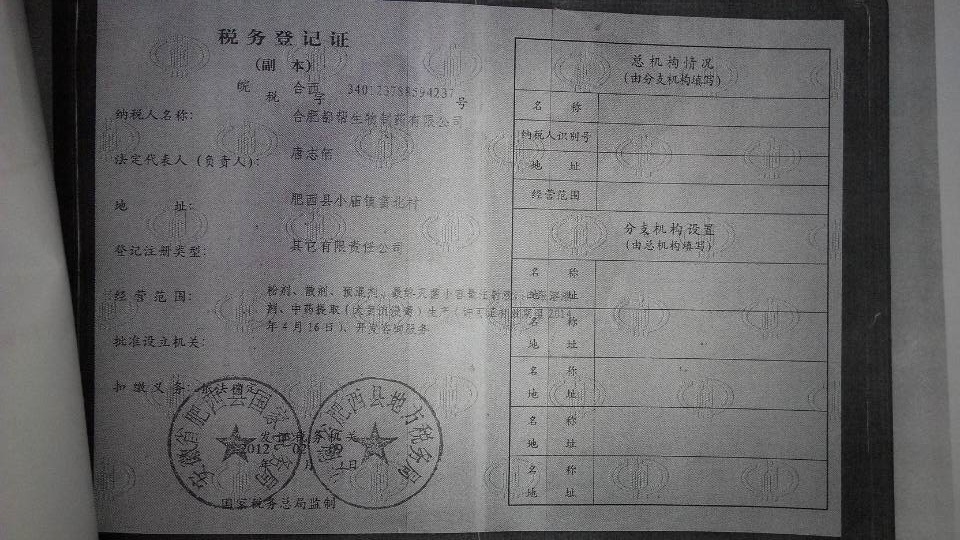 税务登记证
(副 本)
皖 合西 340123788594237
税 字 号
纳税人名称:
合肥 生物制药有限公司
法定代表人 (负责人):
唐志
地 址:
肥西县小庙镇 北村
登记注册类型:
其它有限责任公司
经营范围:
粉剂、散剂、预混剂、最终灭菌小容量注射
剂、中药提取
年4月16日)、开发咨询服务
批准设立机关:
扣缴义务: 依法确定
安徽省肥西县国家税务局
肥西县地方税务局
发证税务机关
2012 02 09
年 月 日
国家税务总局监制
总机构情况
(由分支机构填写)
名 称
纳税人识别号
地 址
经营范围
分支机构设置
(由总机构填写)
名 称
地 址
名 称
地 址
名 称
地 址
名 称
地 址
名 称
地 址